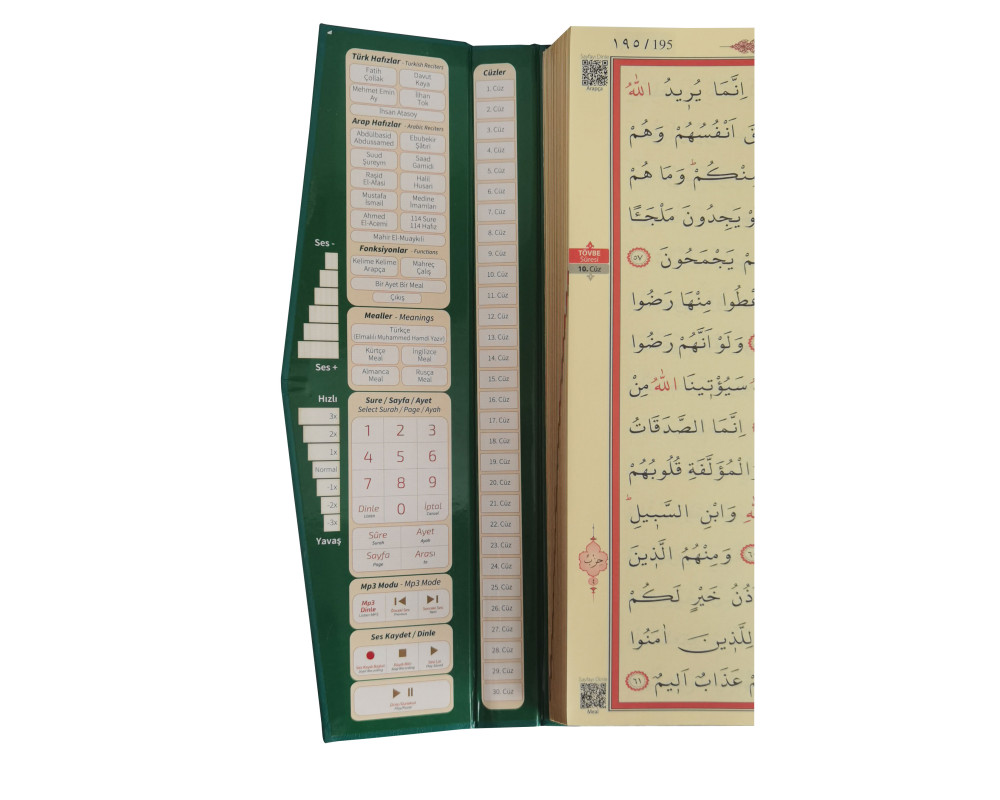 Türk Hafızlar - Turkish Reciters
Fatih
Çollak
Davut
Kaya
Mehmet Emin
Ay
İlhan
Tok
İhsan Atasoy
Arap Hafızlar - Arabic Reciters
Abdulbasid
Abdussamed
Ebubekir
Şatıri
Suud
Şureym
Saad
Gamidi
Raşid
El-Afasi
Halil
Husari
Mustafa
İsmail
Medine
İmamları
Ahmed
El-Acemi
114 Sure
114 Hafız
Mahir El-Muaykıli
Fonksiyonlar - Functions
Kelime Kelime
Arapça
Mahreç
Çalış
Bir Ayet Bir Meal
Çıkış
Mealler - Meanings
Türkçe
(Elmalılı Muhammed Hamdi Yazır)
Kürtçe
Meal
İngilizce
Meal
Almanca
Meal
Rusça
Meal
Sure / Sayfa / Ayet
Select Surah / Page / Ayah
1 2 3
4 5 6
7 8 9
Dinle
Listen
0
İptal
Cancel
Sûre
Surah
Ayet
Ayah
Sayfa
Page
Arası
Mp3 Modu - Mp3 Mode
Mp3
Dinle
Ses Kaydet / Dinle
Ses -
Ses +
Hızlı
3x
2x
1x
Normal
-1x
-2x
-3x
Yavaş
Cüzler
1. Cüz
2. Cüz
3. Cüz
4. Cüz
5. Cüz
6. Cüz
7. Cüz
8. Cüz
9. Cüz
10. Cüz
11. Cüz
12. Cüz
13. Cüz
14. Cüz
15. Cüz
16. Cüz
17. Cüz
18. Cüz
19. Cüz
20. Cüz
21. Cüz
22. Cüz
23. Cüz
24. Cüz
25. Cüz
26. Cüz
27. Cüz
28. Cüz
29. Cüz
30. Cüz
١٩٥ / 195
Arapça
TÖVBE
Sûresi
10. Cüz
حزب
Meal
اِنَّمَا يُر۪يدُ اللّٰهُ
اَنْفُسُهُمْ وَهُمْ
وَمَا هُمْ
يَجِدُونَ مَلْجَـًٔا
يَجْمَحُونَ ٥٧
مِنْهَا رَضُوا
وَلَوْ اَنَّهُمْ رَضُوا
سَيُؤْت۪ينَا اللّٰهُ مِنْ
اِنَّمَا الصَّدَقَاتُ
الْمُؤَلَّفَةِ قُلُوبُهُمْ
وَابْنِ السَّب۪يلِ
وَمِنْهُمُ الَّذ۪ينَ
خَيْرٍ لَكُمْ
لِلَّذ۪ينَ اٰمَنُوا
عَذَابٌ اَل۪يمٌ ٦١